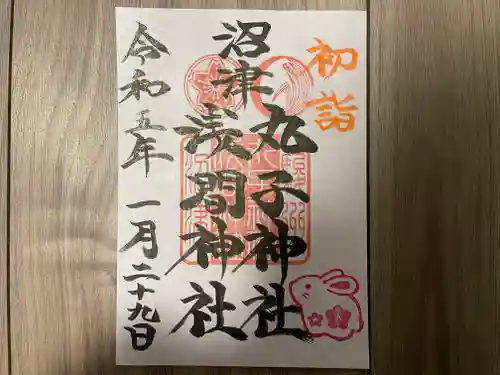 初詣
沼津
丸子神社
浅間神社
令和五年 一月二十九日